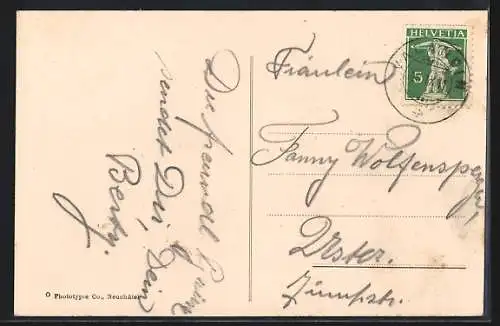 HELVETIA
5
Fräulein
Fanny Wolfensperger,
Uster.
Die freundl. Grüsse
sendet Dir Dein
Berty.
Phototypie Co., Neuchâtel